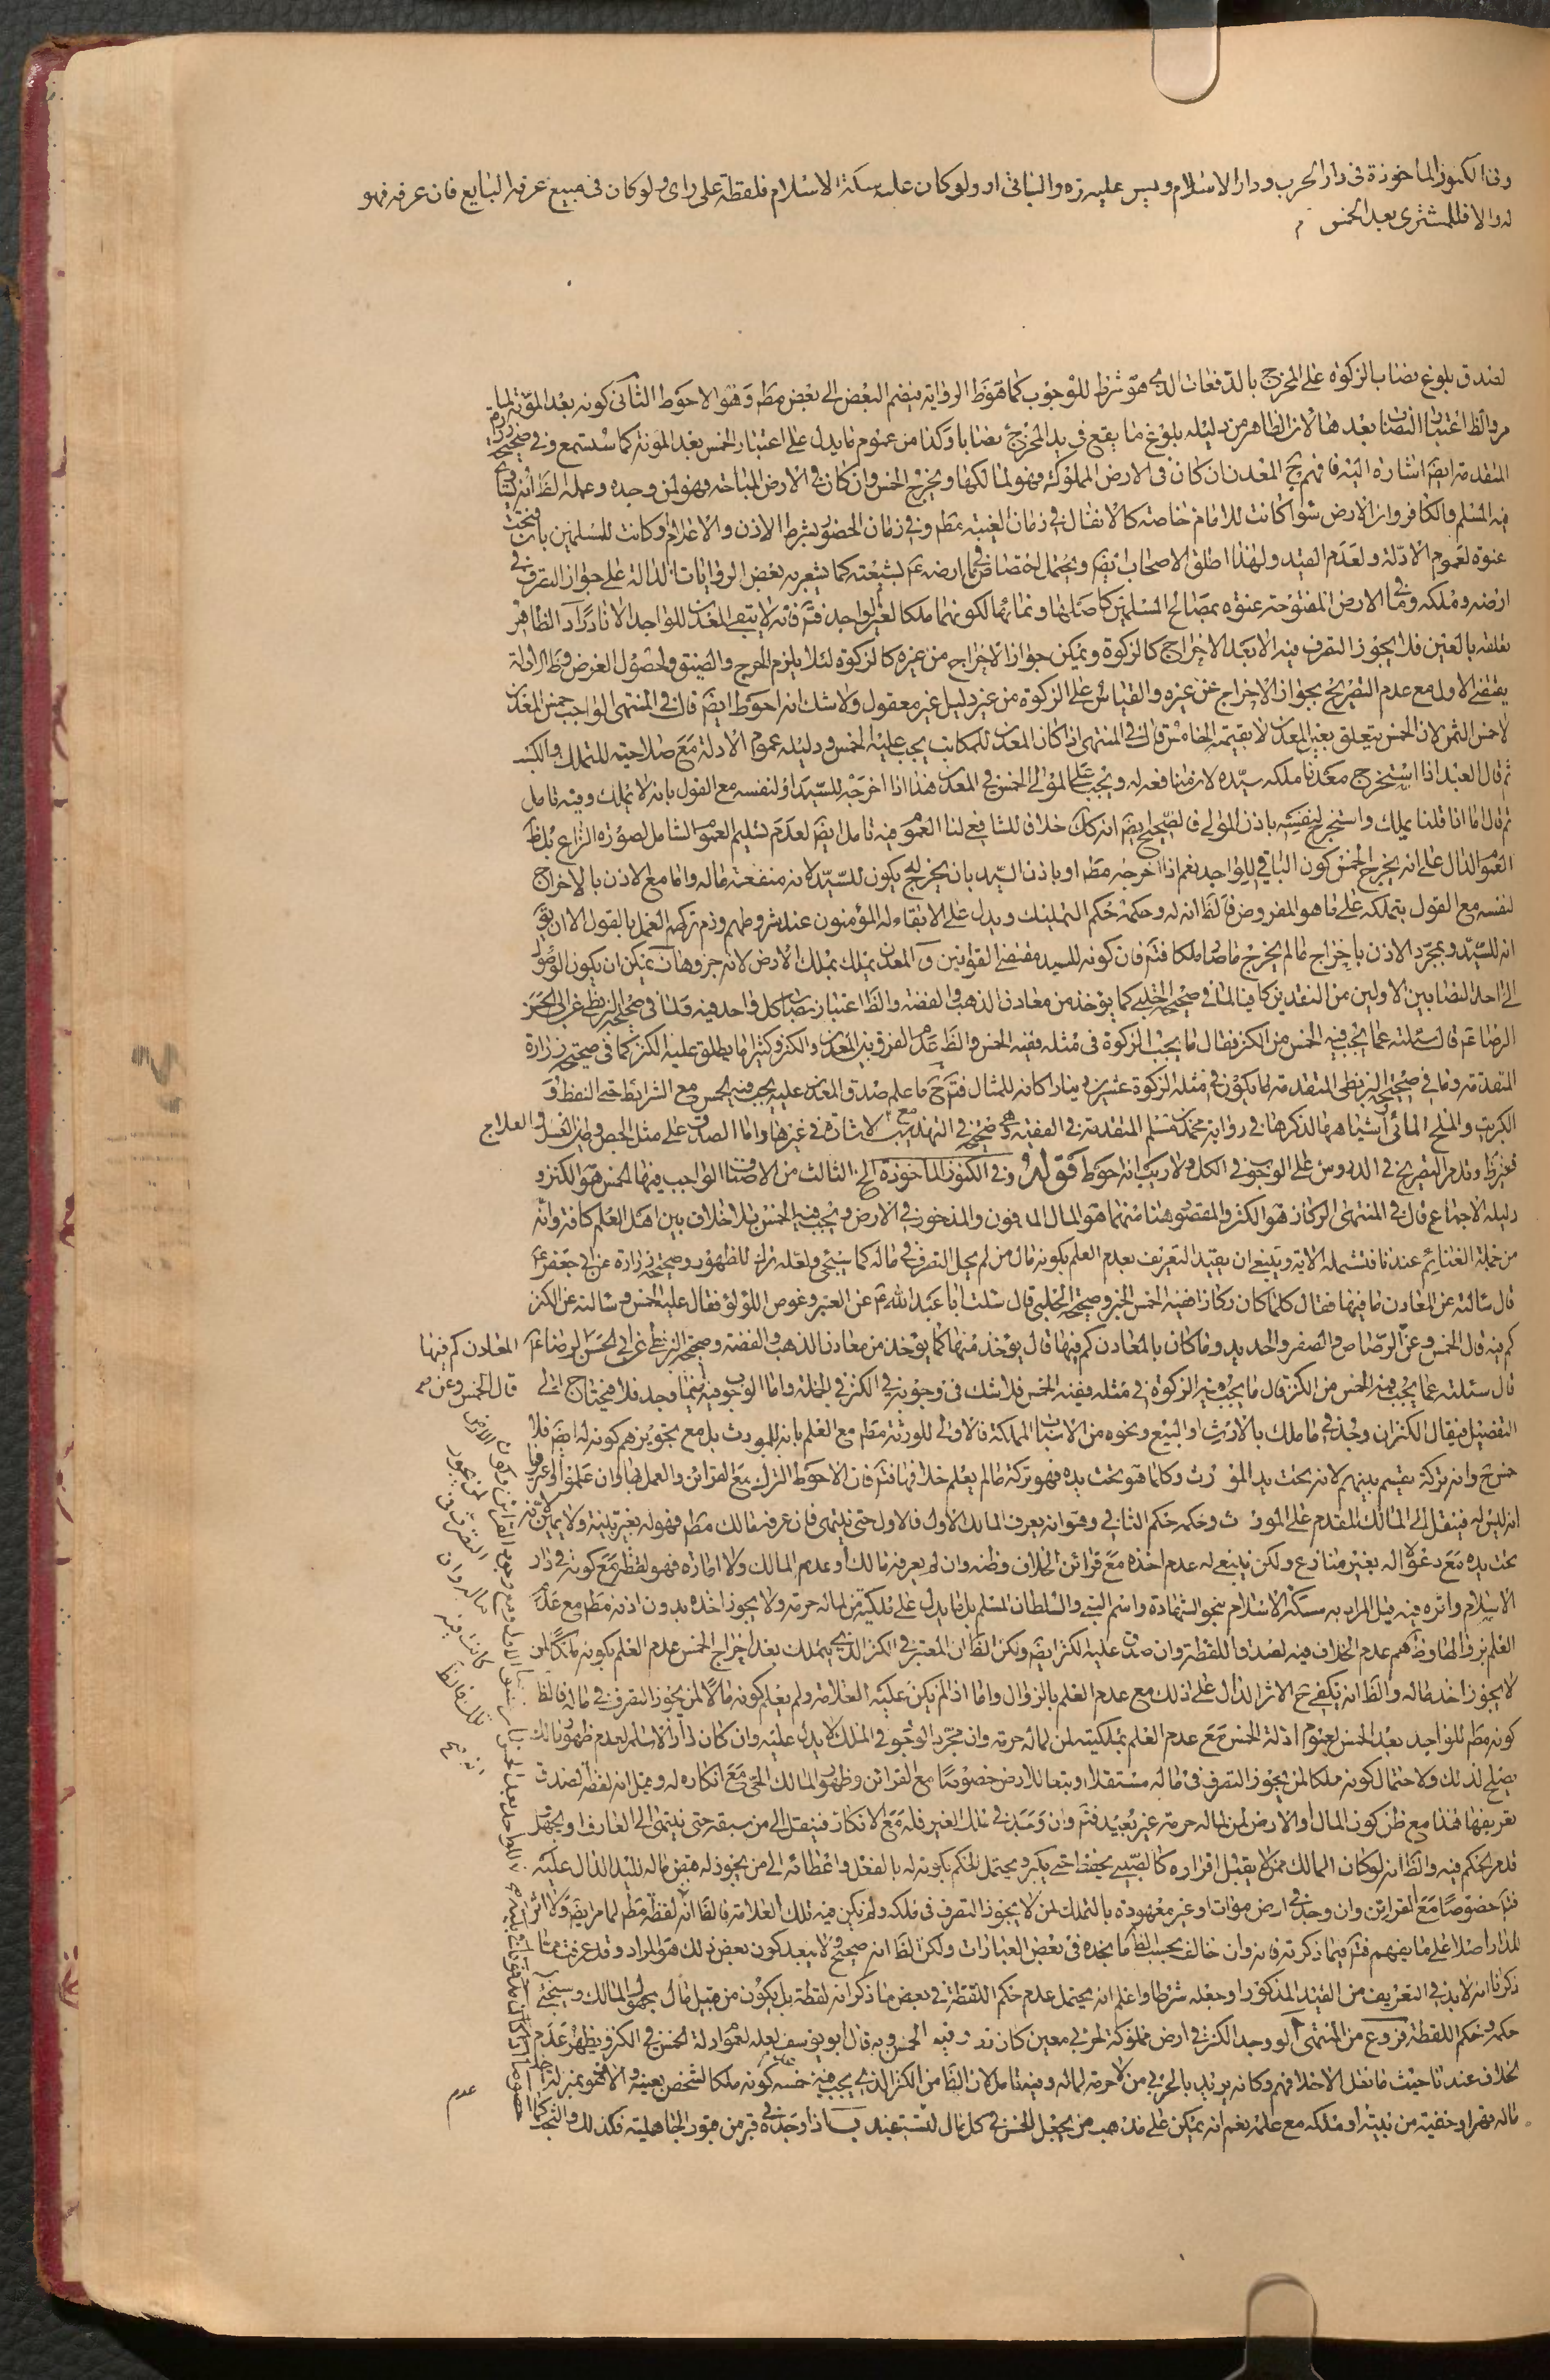 وفى الكنوز الماخوذة فى دار الحرب ودار الاسلام وليس عليه اثره والباقى له ولو كان عليه سكة الاسلام فلقطة على راى ولو كان فى مبيع عرفه البايع فان عرفه فهو
له والا فللمشترى بعد الخمس م
لصدق بلوغ نصاب الزكوة على المخرج بالدفعات الذى هو شرط للوجوب كما هو ظ الرواية فيضم البعض الى بعض مط وهو الاحوط الثانى كونه بعد المؤنة لما
مر والظ اعتبار النصاب بعدها لان الظاهر من دليله بلوغ ما يقع فى يد المخرج نصابا وكذا من عموم ما يدل على اعتبار الخمس بعد المؤنة كما ستسمع وفى صحيحة زرارة
المتقدمة ايض اشارة اليه فافهم ثم المعدن ان كان فى الارض المملوكة فهو لمالكها ويخرج الخمس وان كان فى الارض المباحة فهو لمن وجده وعمله الظ انه يتساوى
فيه المسلم والكافر وان الارض سواء كانت للامام خاصة كالانفال فى زمان الغيبة مط وفى زمان الحضور بشرط الاذن والا عدم او كانت للمسلمين بان فتحت
عنوة لعموم الادلة ولعدم القيد ولهذا اطلق الاصحاب ايض ويحتمل اختصاص ما فى ارضه عم بشيعته كما يشعر به بعض الروايات الدالة على جواز التصرف فى
ارضه وملكه وما فى الارض المفتوحة عنوة بمصالح المسلمين كاصلها ونمائها لكونهما ملكا لغير الواجد فتم فانه لا يبقى المعدن للواجد الا نادرا ثم الظاهر
تعلقه بالعين فلا يجوز التصرف فيه الا بعد الاخراج كالزكوة ويمكن جواز الاخراج من غيره كالزكوة لئلا يلزم الحرج والضيق ولحصول الغرض وظ الادلة
يقتضى الاول مع عدم التصريح بجواز الاخراج عن غيره والقياس على الزكوة من غير دليل غير معقول ولا شك انه احوط ايض قال فى المنتهى الواجب خمس المعدن
لا خمس الثمن لان الخمس يتعلق بعين المعدن لا بقيمته الخامس قال فى المنتهى اذا كان المعدن للمكاتب يجب عليه الخمس ودليله عموم الادلة مع صلاحيته للتملك والكسب
ثم قال العبد اذا استخرج معدنا ملكه سيده لان منافعه له ويجب على المولى الخمس فى المعدن هذا اذا اخرجه للسيد او لنفسه مع القول بانه لا يملك وفيه تامل
ثم قال اما اذا قلنا يملك واستخرج لنفسه باذن المولى فالصحيح ايض انه كك خلافا للشافعى لنا العموم فيه تامل ايض لعدم تسليم العموم الشامل لصورة النزاع بل ظ
العموم الدال على انه يخرج الخمس كون الباقى للواجد نعم اذا اخرجه مط او باذن السيد بان يخرج له يكون للسيد لانه منفعة ماله واما مع الاذن بالاخراج
لنفسه مع القول بتملكه على ما هو المفروض فالظ انه له وحكمه حكم التمليك ويدل على الابقاء له المؤمنون عند شروطهم وذم تركه العمل بالقول الا ان يق
انه للسيد وبمجرد الاذن باخراج مالم يخرج ما صار ملكا فتم فان كونه للسيد مقتضى القوانين والمعدن يملك بملك الارض لانه جزوها ثم يمكن ان يكون الوصول
الى احد النصابين الاولين من النقدين كافيا لما فى صحيحة الحلبى كما يؤخذ من معادن الذهب والفضة والظ اعتبار نصاب كل واحد فيه ولما فى صحيحة البزنطى عن ابى الحسن
الرضا عم قال سئلته عما يجب فيه الخمس من الكنز فقال ما يجب الزكوة فى مثله ففيه الخمس والظ عدم الفرق بين المعدن والكنز وكثيرا ما يطلق عليه الكنز كما فى صحيحة زرارة
المتقدمة وما فى صحيحة البزنطى المتقدمة لما يكون فى مثله الزكوة عشرين دينارا كانه للمثال فتم ثم ما علم صدق المعدن عليه يجب فيه الخمس مع الشرائط حتى النفط و
الكبريت والملح المائى واشباهها لذكرها فى رواية محمد بن مسلم المتقدمة فى الفقيه وهى صحيحة فى التهذيب مع الاشارة فى غيرها واما الصدق على مثل الجص وطين الغسل والعلاج
فغير ظ وقد مر التصريح فى الدروس على الوجوب فى الكل ولا ريب انه احوط قوله وفى الكنوز الماخوذة الخ الثالث من الاصناف الواجب فيها الخمس هو الكنز و
دليله الاجماع قال فى المنتهى الركاز هو الكنز والمقصود هنا منهما هو المال المدفون والمذخور فى الارض ويجب فيه الخمس بلا خلاف بين اهل العلم كافة وانه
من جملة الغنائم عندنا فتشمله الاية وينبغى ان يقيد التعريف بعدم العلم بكونه مال من لم يحل التصرف فى ماله كما سيجئ ولعله ترك للظهور وصحيحة زرارة عن ابى جعفر عم
قال سالته عن المعادن ما فيها فقال كلما كان ركازا ففيه الخمس الخبر وصحيحة الحلبى قال سئلت ابا عبد الله عم عن العنبر وغوص اللؤلؤ فقال عليه الخمس وسالته عن الكنز
كم فيه قال الخمس وعن الرصاص والصفر والحديد وما كان بالمعادن كم فيها قال يؤخذ منها كما يؤخذ من معادن الذهب والفضة وصحيحة البزنطى عن ابى الحسن الرضا عم المعادن كم فيها
قال سئلته عما يجب فيه الخمس من الكنز قال ما يجب فيه الزكوة فى مثله ففيه الخمس فلا شك فى وجوبه فى الكنز فى الجملة واما الوجوب فيه فيما وجد فلا فيحتاج الى قال الخمس وعن
التفصيل فيقال الكنز ان وجد فى ما ملك بالارث او البيع ونحوه من الاسباب المملكة فالاولى للورثة مط مع العلم بانه للمورث بل مع تجويزهم كونه له ايض فلا
خمس ح وانه تركة يقسم بينهم لانه تحت يد المورث وكلما هو تحت يده فهو تركة مالم يعلم خلافها فتم فان الاحوط الترك مع القرائن والعمل بها وان علموا او عرفوا
انه ليس له فينقل الى المالك المقدم على المورث وحكمه حكم الثانى وهو انه يعرف المالك الاول فالاول حتى ينتهى فان عرفه مالك مط فهو له بغير بينة ولا يمين لانه
تحت يده مع دعواه اله بغير منازع ولكن ينبغى له عدم اخذه مع قرائن الخلاف وظنه وان لم يعرفه مالك او عدم المالك ولا امارة فهو لقطة مع كونه فى دار
الاسلام واثره فيه قيل المراد به سكة الاسلام نحو الشهادة واسم النبى والسلطان المسلم بل ما يدل على ملكية من لماله حرمة ولا يجوز اخذه بدون اذنه مط مع عدم
العلم بزوالها وظ هم عدم الخلاف فيه لصدق اللقطة وان صدق عليه الكنز ايض ولكن الظ ان المعتبر فى الكنز الذى يملك بعد اخراج الخمس عدم العلم بكونه ملكا لمن
لا يجوز اخذ ماله والظ انه يكفى ح الاثر الدال على ذلك مع عدم العلم بالزوال واما اذا لم يكن عليه العلامة ولم يعلم كونه مالا لمن يجوز التصرف فى ماله فالظ
كونه مط للواجد بعد الخمس لعموم ادلة الخمس مع عدم العلم بملكيته لمن لماله حرمة وان مجرد الوجود فى الملك لا يدل عليه وان كان دار الاسلام لعدم ظهور مالك
يصلح لذلك ولاحتمال كونه ملكا لمن يجوز التصرف فى ماله مستقلا وبتعا للارض خصوصا مع القرائن وظهور المالك الحى مع انكاره له وقيل انه لقطة لصدق
تعريفها هذا مع ظن كون المال او الارض لمن لماله حرمة غير بعيد فتم وان وجد فى ملك الغير فله مع الانكار فينقل الى من سبقه حتى ينتهى الى العارف او يجهل
قد مر الحكم فيه والظ انه لو كان المالك ممن لا يقبل اقراره كالصبى يحفظ حتى يكبر ويحتمل الحكم بكونه له بالفعل واعطائه الى من يجوز له قبض ماله لليد الدال عليه
فتم خصوصا مع القرائن وان وجد فى ارض موات او غير معهودة بالتملك لمن لا يجوز التصرف فى ملكه ولم يكن فيه تلك العلامة فالظ انه لقطة مط لما مر ايض ولا اثر
للدار اصلا على ما يفهم فتم فيما ذكرته فانه وان خالف بحسب الظ ما نجده فى بعض العبارات ولكن الظ انه صحيح ولا يبعد كون بعض ذلك هو المراد وقد عرفت مما
ذكرنا انه لابد فى التعريف من القيد المذكور او جعله شرطا واعلم انه يحتمل عدم حكم اللقطة فى بعض ما ذكر انه لقطة بل يكون من قبيل مال مجهول المالك وسيجئ
حكمه وحكم اللقطة فروع من المنتهى آ لو وجد الكنز فى ارض مملوكة لحربى معين كان ركازا وفيه الخمس وبه قال ابو يوسف لعله لعموم ادلة الخمس فى الكنز ويظهر عدم
الخلاف عندنا حيث ما نقل الاخلافهم وكانه يريد بالحربى من لا حرمة لماله وفيه تامل لان الظ من الكنز الذى يجب فيه خمسه عدم كونه ملكا لشخص بعينه والا فهو بمنزلة اخذ
ماله قهرا وخفية من بيته او ملكه مع علمه نعم انه يمكن على مذهب من يجعل الخمس فى كل مال يستفيد ب اذا وجده فى قبر من قبور الجاهلية فكذلك والشيخ كذا
عدم